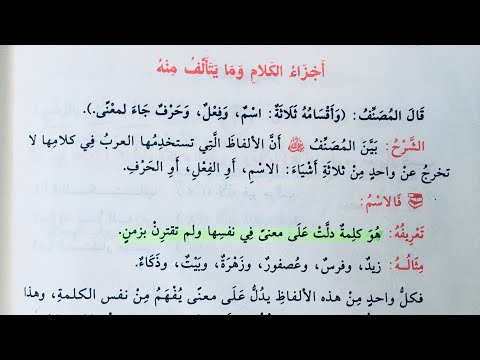 أَجْزَاءُ الكَلامِ وَمَا يَتَأَلَّفُ مِنْهُ
قَالَ المُصَنِّفُ: (وَأَقْسَامُهُ ثَلاثَةٌ: اسْمٌ، وَفِعْلٌ، وَحَرْفٌ جَاءَ لمعنًى.).
الشَّرْحُ: بَيَّنَ المُصَنِّفُ ﷺ أَنَّ الألفاظَ الَّتِي تستخدِمُها العربُ فِي كلامِها لا
تخرجُ عنْ واحدٍ مِنْ ثلاثةِ أَشْيَاءَ: الاسْمِ، أَوِ الفِعْلِ، أَوِ الحَرْفِ.
فَالاسْمُ:
تَعْرِيفُهُ: هُوَ كلِمةٌ دلَّتْ عَلَى معنىً فِي نفسِها ولم تقترِنْ بزمنٍ.
مِثَالُهُ: زيدٌ، وفرسٌ، وعُصفورٌ، وزَهْرَةٌ، وبَيْتٌ، وَذَكَاءٌ.
فكلُّ واحدٍ مِنْ هذه الألفاظِ يدُلُّ عَلَى معنًى يُفْهَمُ مِنْ نفسِ الكلمةِ، وهذا